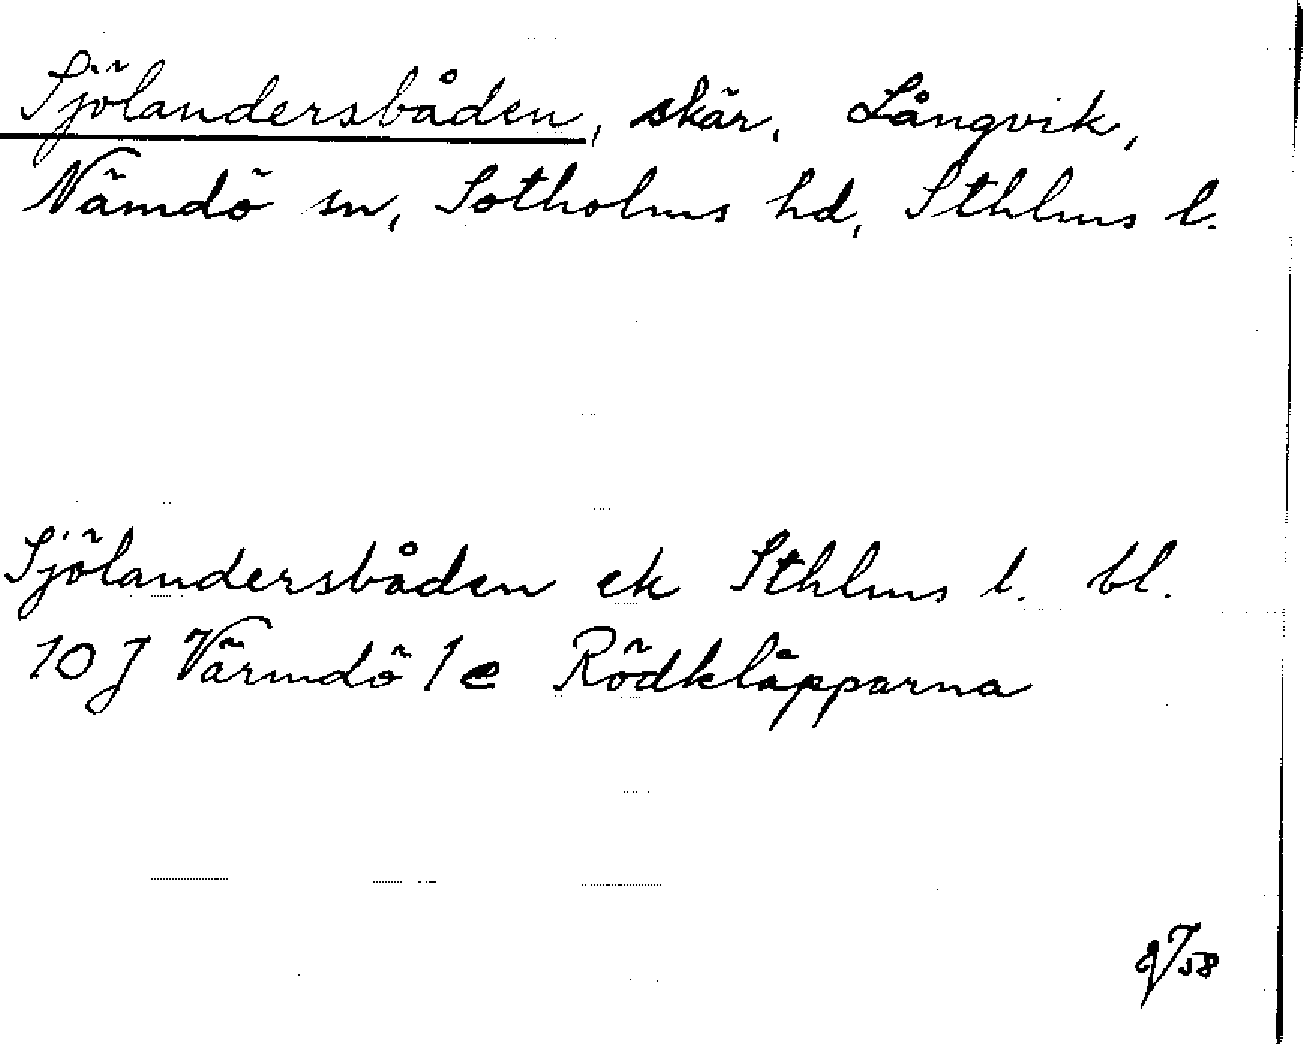 Sjölandersbåden, skär, Långvik,
Nämdö sn, Sotholms hd, Sthlms l.
Sjölandersbåden ek Sthlms l. bl.
10 J Värmdö 1e Rödkläpparna